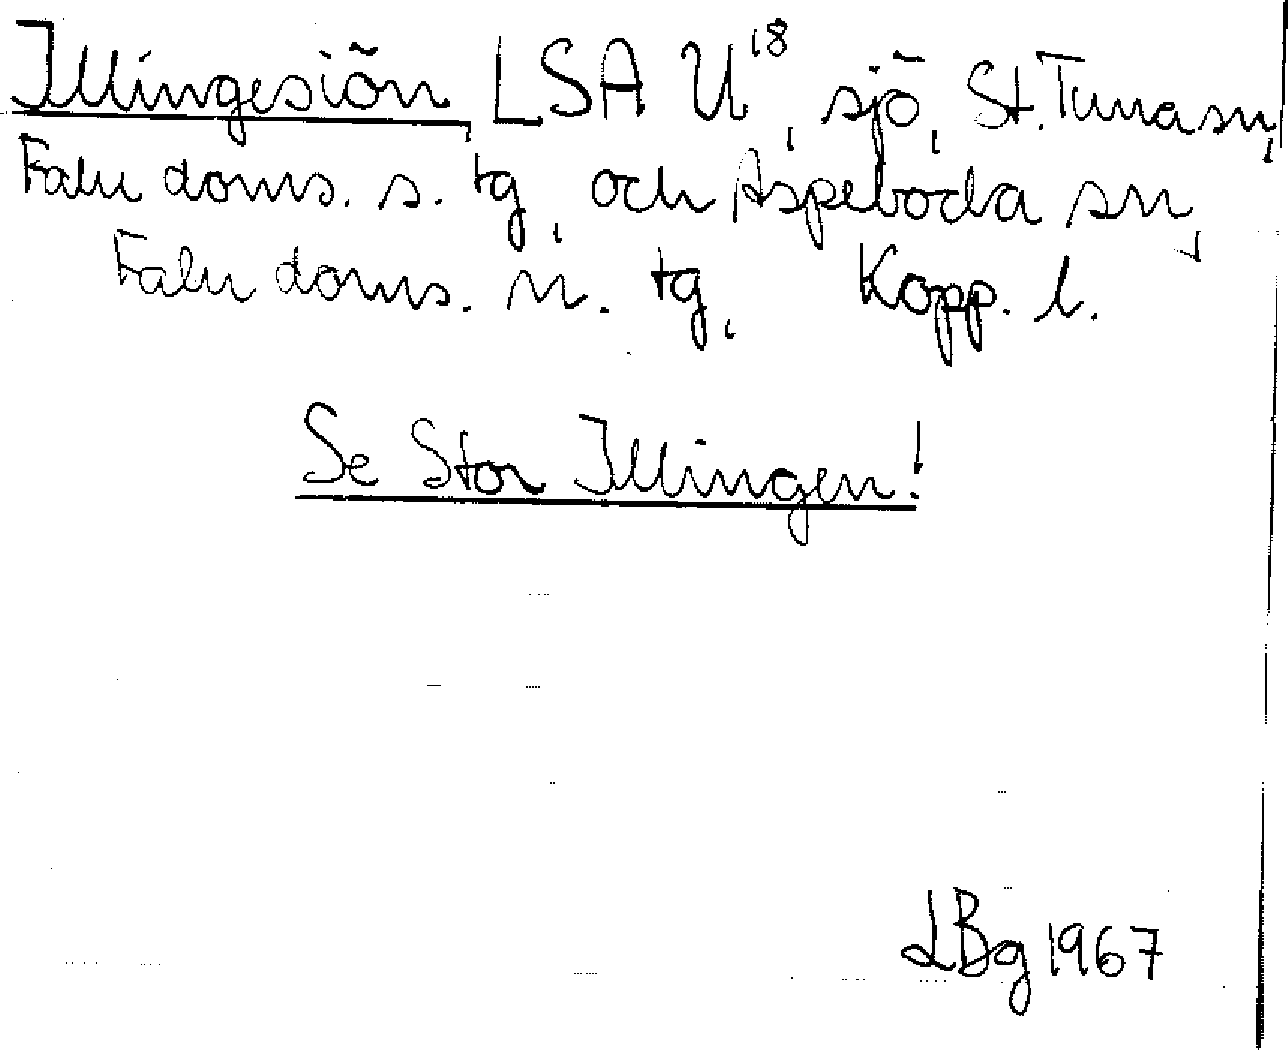 Illingesiön, LSA U18, sjö, St. Tuna sn,
Falu doms. s. tg, och Aspeboda sn,
Falu doms. n. tg, Kopp. l.
Se Stor Illingen!
LBg 1967